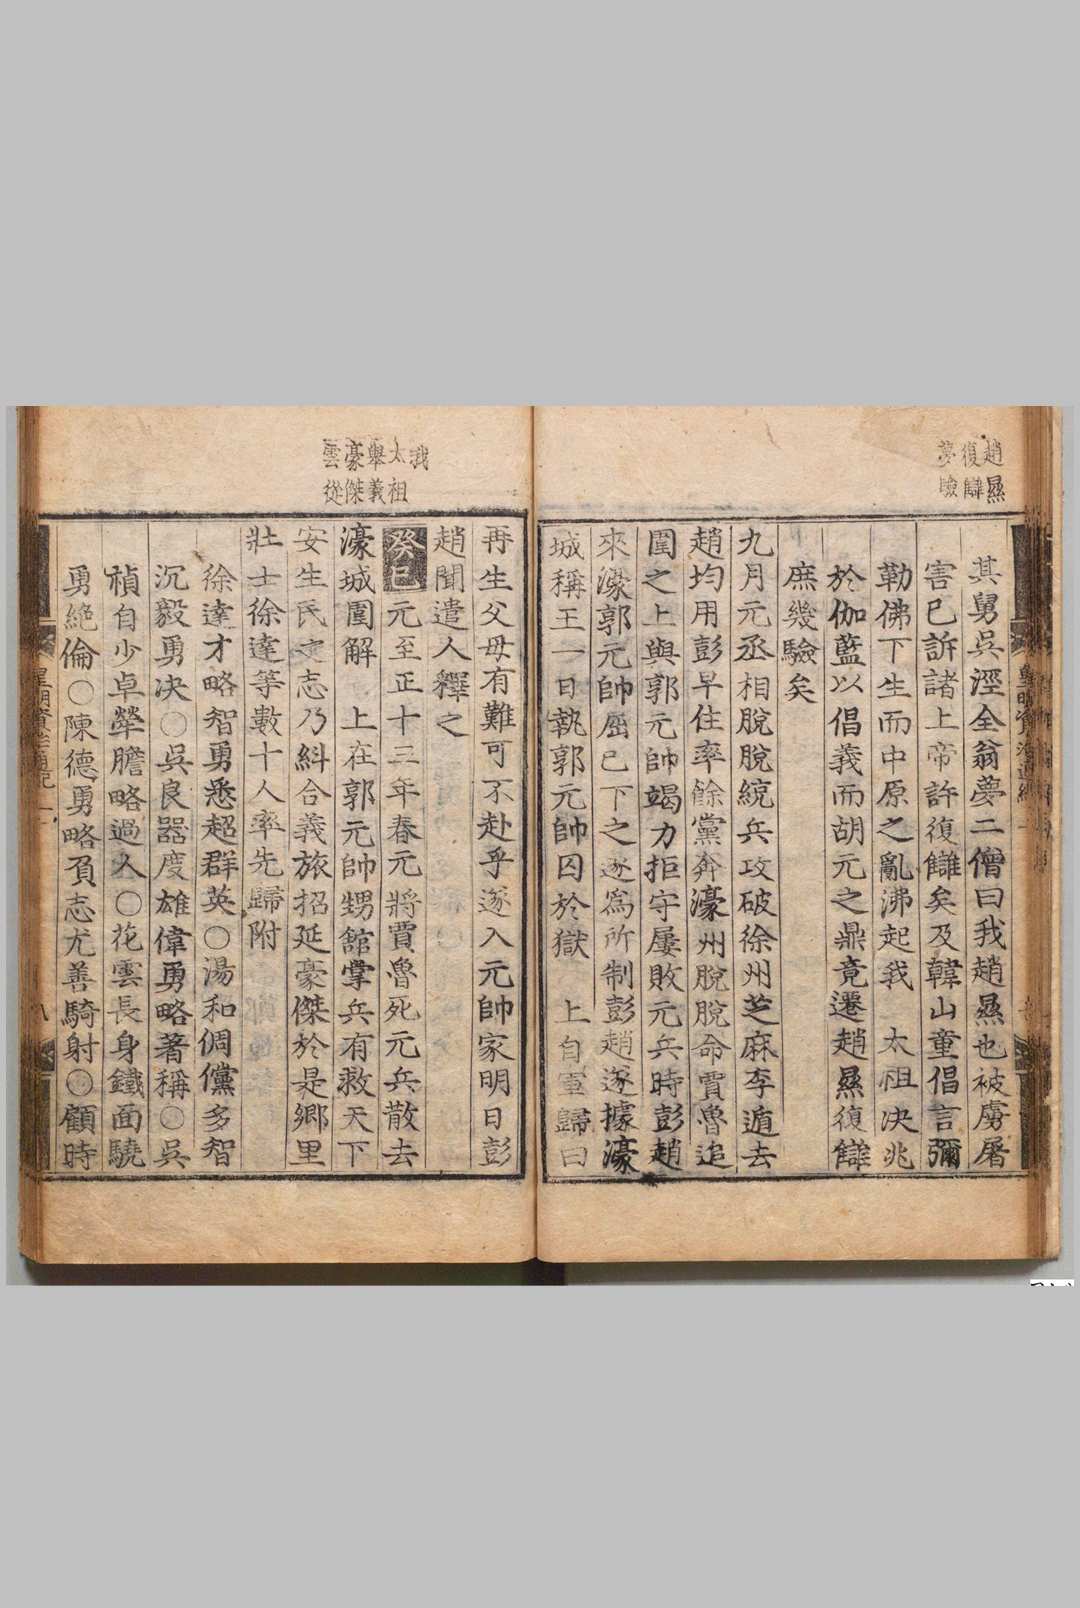 趙㬎
復讎
夢驗
其舅吳涇全翁夢二僧曰我趙㬎也被虜屠
害已訴諸上帝許復讎矣及韓山童倡言彌
勒佛下生而中原之亂沸起我 太祖决兆
於伽藍以倡義而胡元之鼎竟遷趙㬎復讎
庶幾驗矣
九月元丞相脫脫統兵攻破徐州芝麻李遁去
趙均用彭早住率餘黨奔濠州脫脫命賈魯追
圍之上與郭元帥竭力拒守屢敗元兵時彭趙
來濠郭元帥屈己下之遂爲所制彭趙遂據濠
城稱王一日執郭元帥囚於獄 上自軍歸曰
我
太祖
舉義
豪傑
雲從
再生父母有難可不赴乎遂入元帥家明日彭
趙聞遣人釋之
癸巳元至正十三年春元將賈魯死元兵散去
濠城圍解 上在郭元帥甥舘掌兵有救天下
安生民之志乃糾合義旅招延豪傑於是鄉里
壯士徐達等數十人率先歸附
徐達才略智勇悉超群英○湯和倜儻多智
沉毅勇决○吳良器度雄偉勇略著稱○吳
禎自少卓犖膽略過人○花雲長身鐵面驍
勇絕倫○陳德勇略負志尤善騎射○顧時
皇明資治通紀 一
八